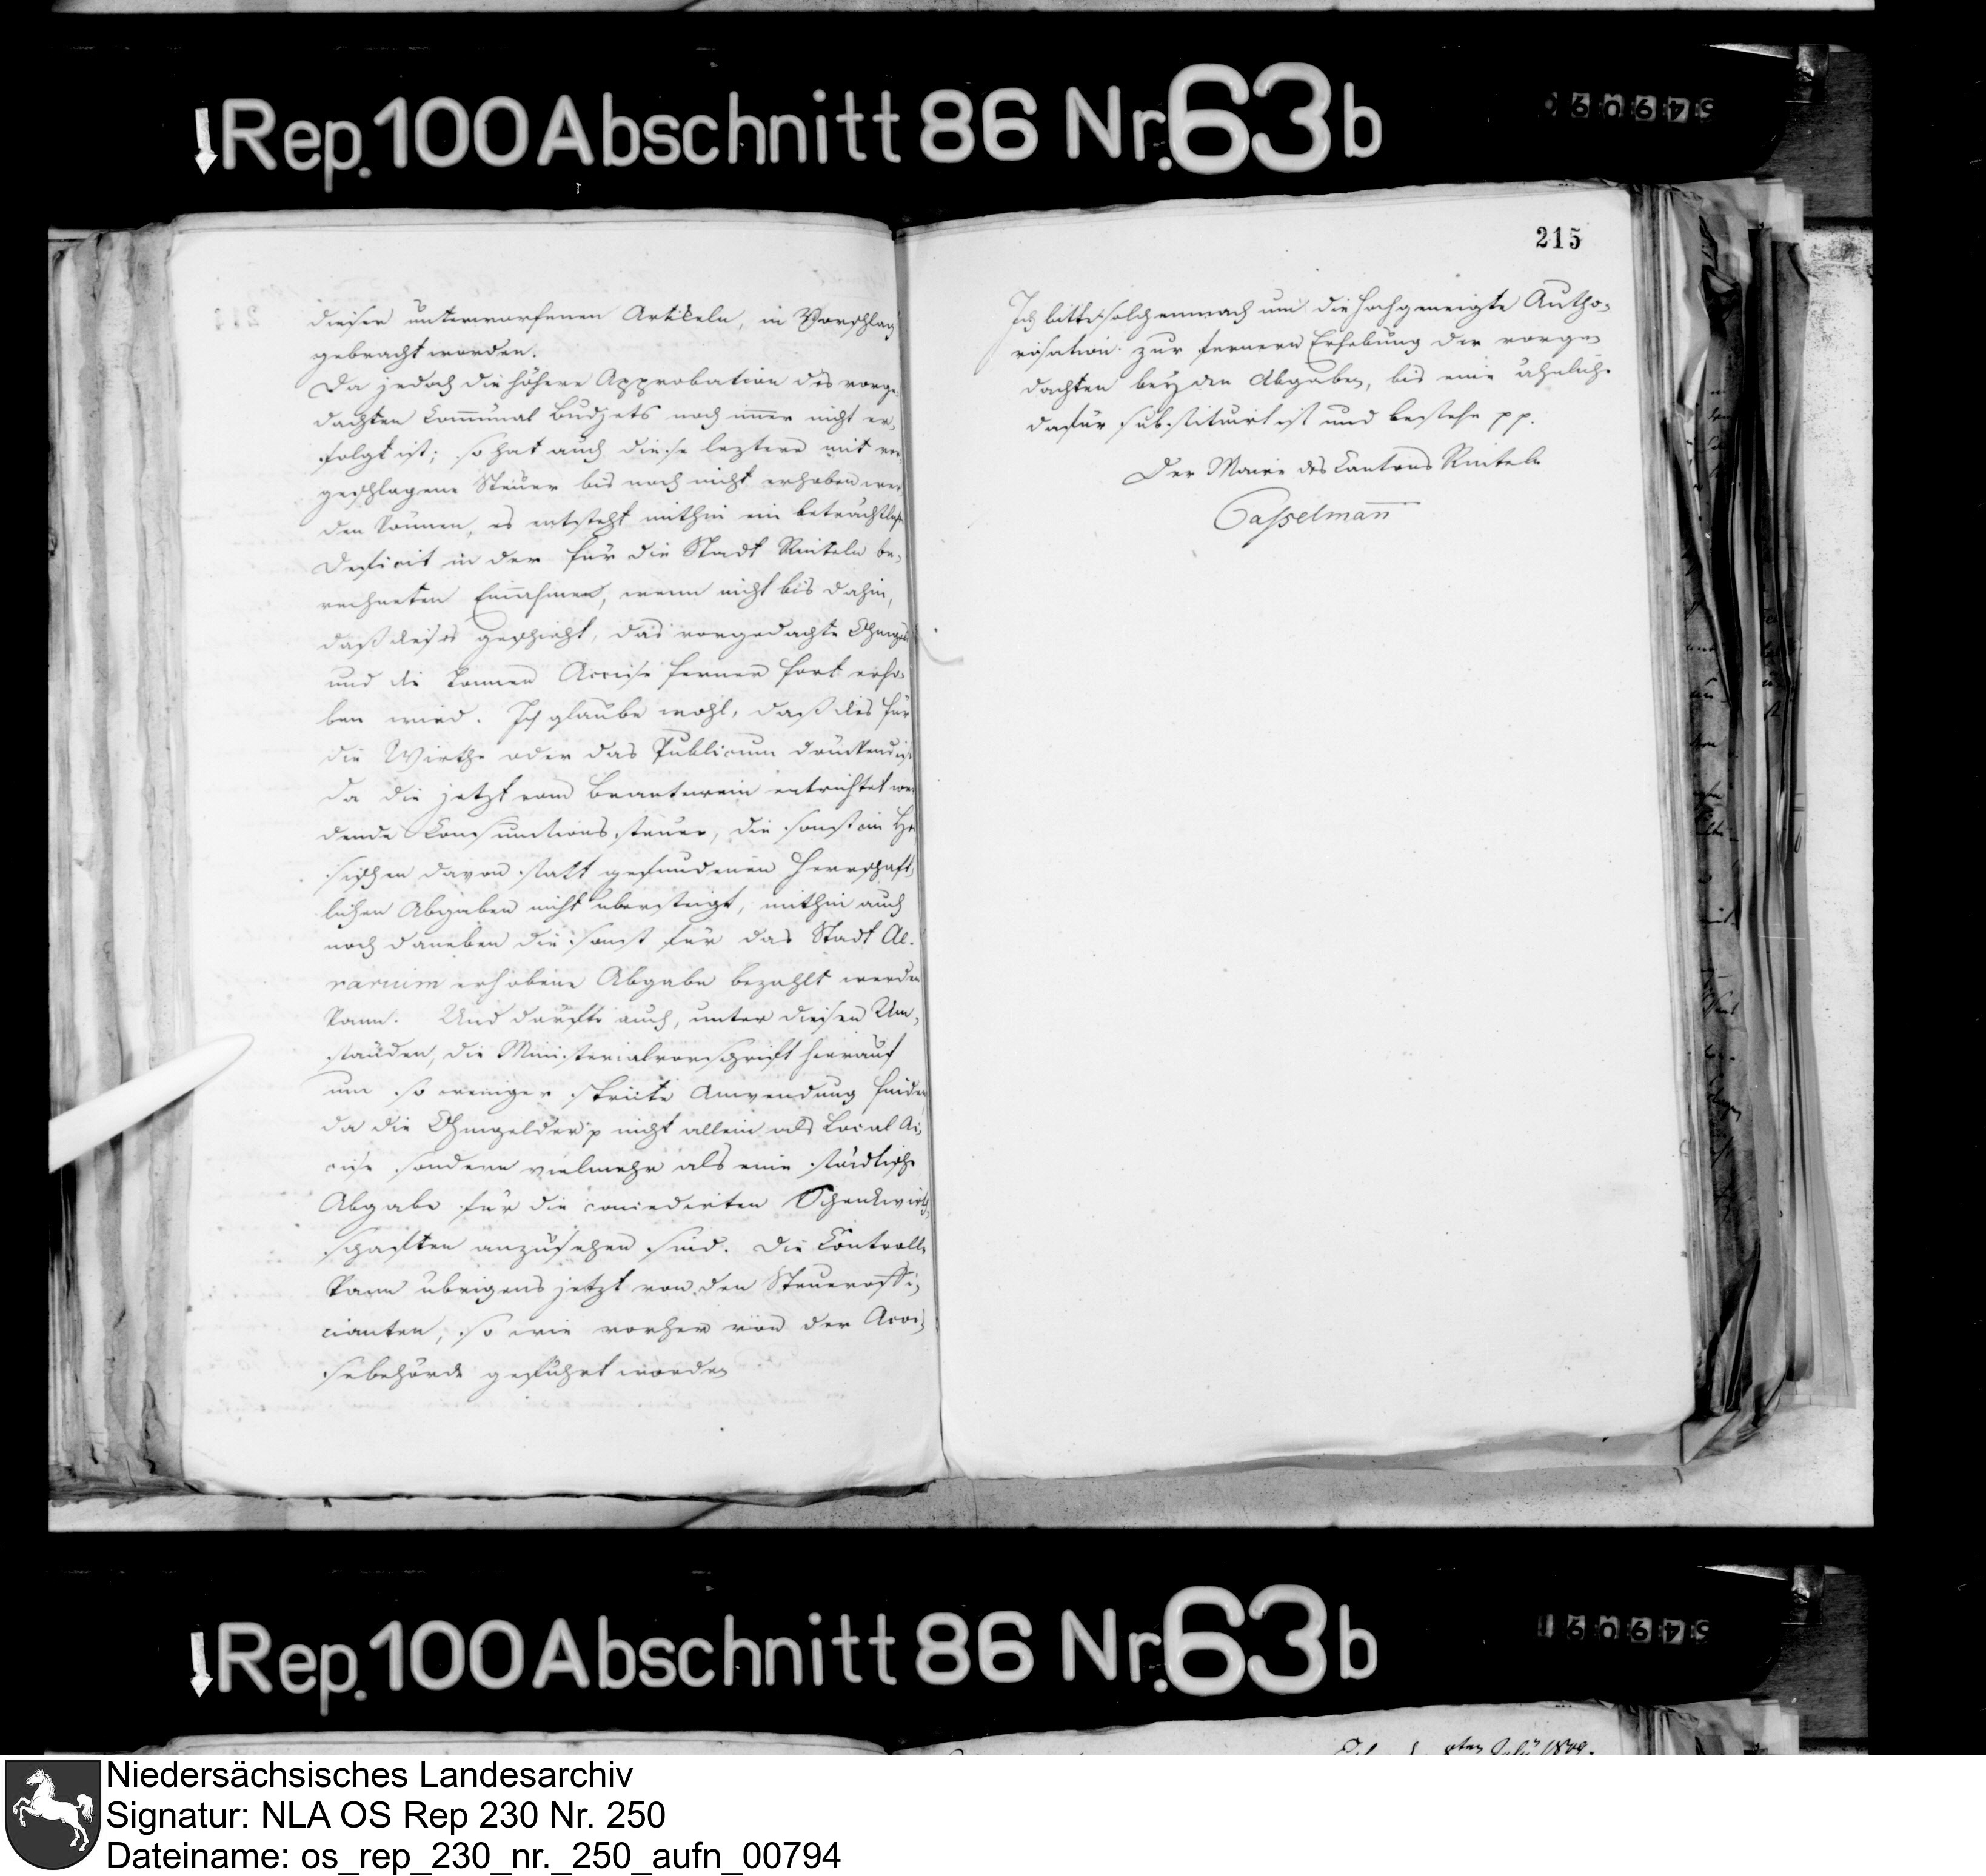 Rep. 100 Abschnitt 86 Nr. 63 b
dieser unterworfenen Artikeln, in Vorschlag
gebracht worden.
Da jedoch die höhere Approbation des vorge-
dachten Communal Budjets noch immer nicht er-
folgt ist; so hat auch diese leztere mit vor-
geschlagene Steuer bis noch nicht erhoben wer-
den können, es entsteht mithin ein beträchtliches
Deficit in der für die Stadt Rinteln be-
rechneten Einnahmen, wenn nicht bis dahin,
daß dieses geschieht, das vorgedachte Ohmgeld
und die Tonnen Accise ferner fort erho-
ben wird. Ich glaube nicht, daß dies für
die Wirthe oder das Publicum drückend ist
da die jetzt vom Brantwein entrichtet wer-
dende Consumtionssteuer, die sonst im Hes-
sischen davon statt gefundenen Herrschaft-
lichen Abgaben nicht übersteigt, mithin auch
noch daneben die sonst für das Stadt Ae-
rarium erhobene Abgabe bezahlt werden
kann. Und dürfte auch, unter diesen Um-
ständen, die Ministerialvorschrift hierauf
um so weniger stricte Anwendung finden
da die Ohmgelder p nicht allein als Local Ac-
cise sondern vielmehr als eine städtische
Abgabe für die concedirten Schenkwirth-
schaften anzusehen sind. Die Controlle
kann übrigens jetzt von den Steueroffi-
cianten, so wie vorher von der Acci-
sebehörde geführt worden
215
Ich bitte solchemnach um die hochgeneigte Autho-
risation zur fernern Erhebung der vorge-
dachten beyden Abgaben, bis eine ähnliche
dafür substituirt ist und bestehe pp.
Der Maire des Cantons Rinteln
Casselmann
Rep. 100 Abschnitt 86 Nr. 63 b
Niedersächsisches Landesarchiv
Signatur: NLA OS Rep 230 Nr. 250
Dateiname: os_rep_230_nr._250_aufn_00794